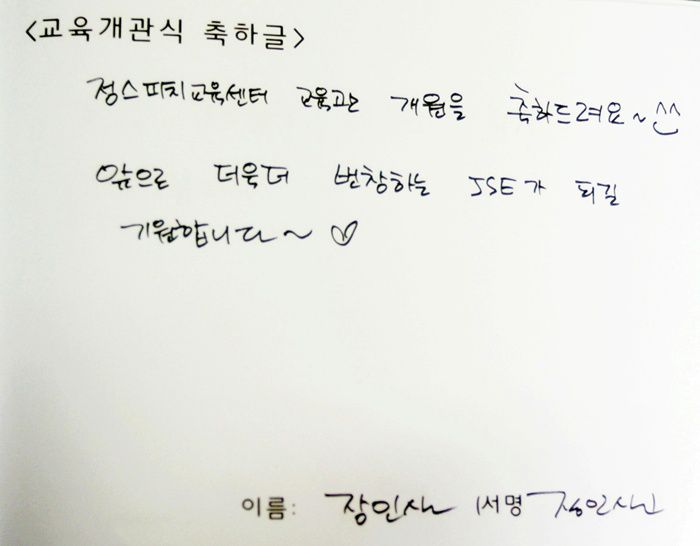 <교육개관식 축하글>
정스피치교육센터 교육관 개원을 축하드려요~^^
앞으로 더욱더 번창하는 JSE가 되길
기원합니다~ ♡
이름: 장인사 (서명